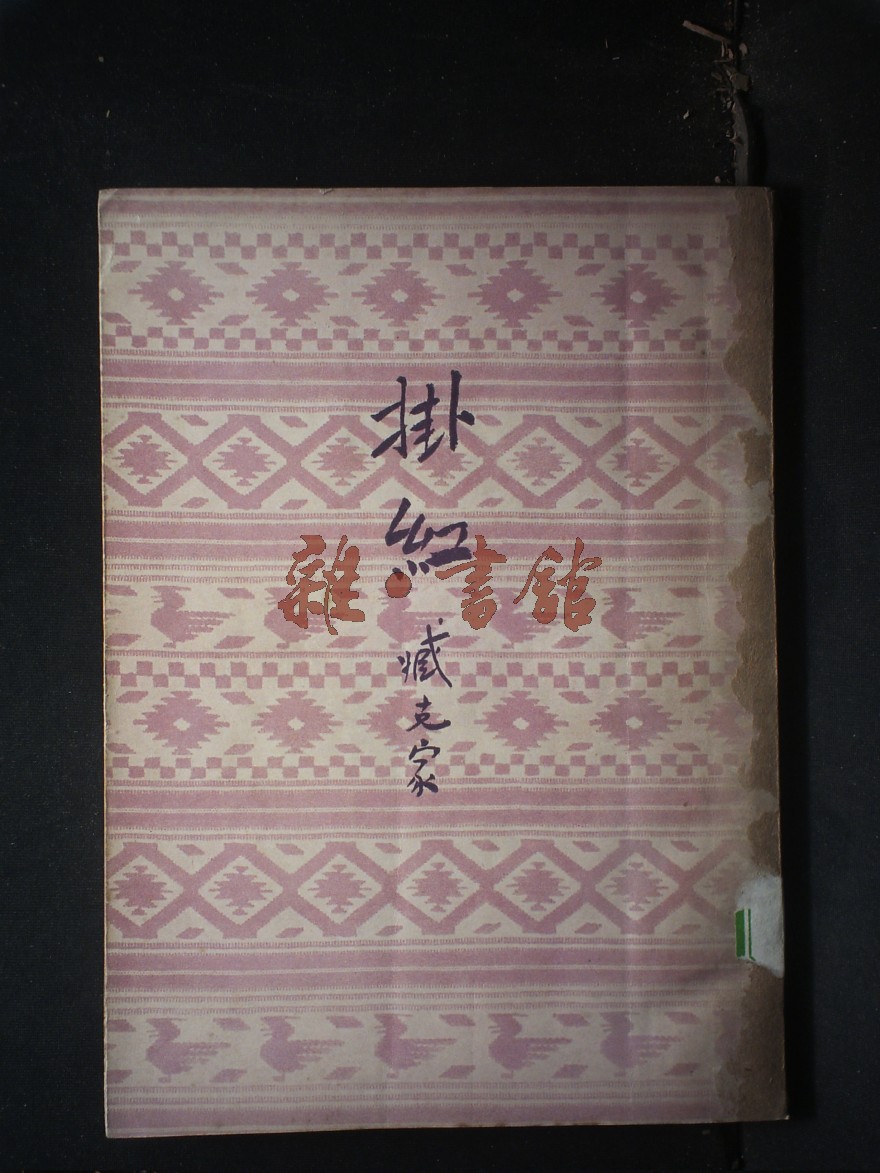 掛紅
雜·書館
臧克家